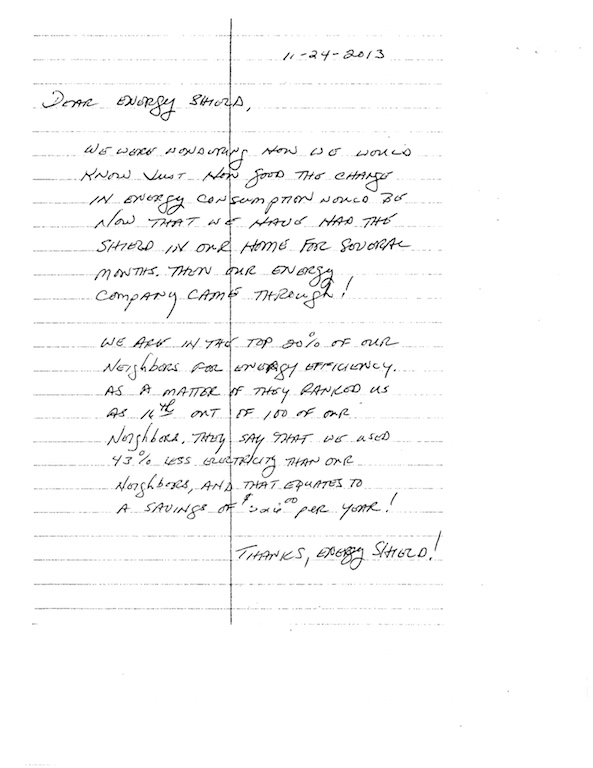 11-24-2013
DEAR ENERGY SHIELD,
WE WERE WONDURING HOW WE WOULD
KNOW JUST HOW GOOD THE CHANGE
IN ENERGY CONSUMPTION WOULD BE
NOW THAT WE HAVE HAD THE
SHIELD IN OUR HOME FOR SEVERAL
MONTHS. THEN OUR ENERGY
COMPANY CAME THROUGH!
WE ARE IN THE TOP 20% OF OUR
NEIGHBORS FOR ENERGY EFFICIENCY.
AS A MATTER OF THEY RANKED US
AS 16th OUT OF 100 OF OUR
NEIGHBORS. THEY SAY THAT WE USED
43% LESS ELECTRICITY THAN OUR
NEIGHBORS, AND THAT EQUATES TO
A SAVINGS OF PER YEAR!
THANKS, ENERGY SHIELD!